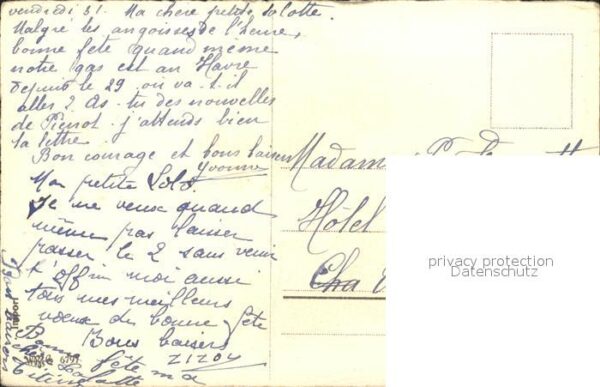 vendredi 31. Ma chère petite Lolotte.
Malgré les angoisses de l'heure,
bonne fête quand même
notre gas est au Havre
depuis le 29 où va-t-il
aller ? As-tu des nouvelles
de Pierrot. j'attends bien
ta lettre
Bon courage et bons baisers
Yvonne
Ma petite Lolo.
Je ne veux quand
même pas laisser
passer le 2 sans venir
t'offrir moi aussi
tous mes meilleurs
voeux de bonne fête
Bons baisers
ZIZOU
Bonne fête ma
Madame
Hôtel
Cha
privacy protection
Datenschutz
Import